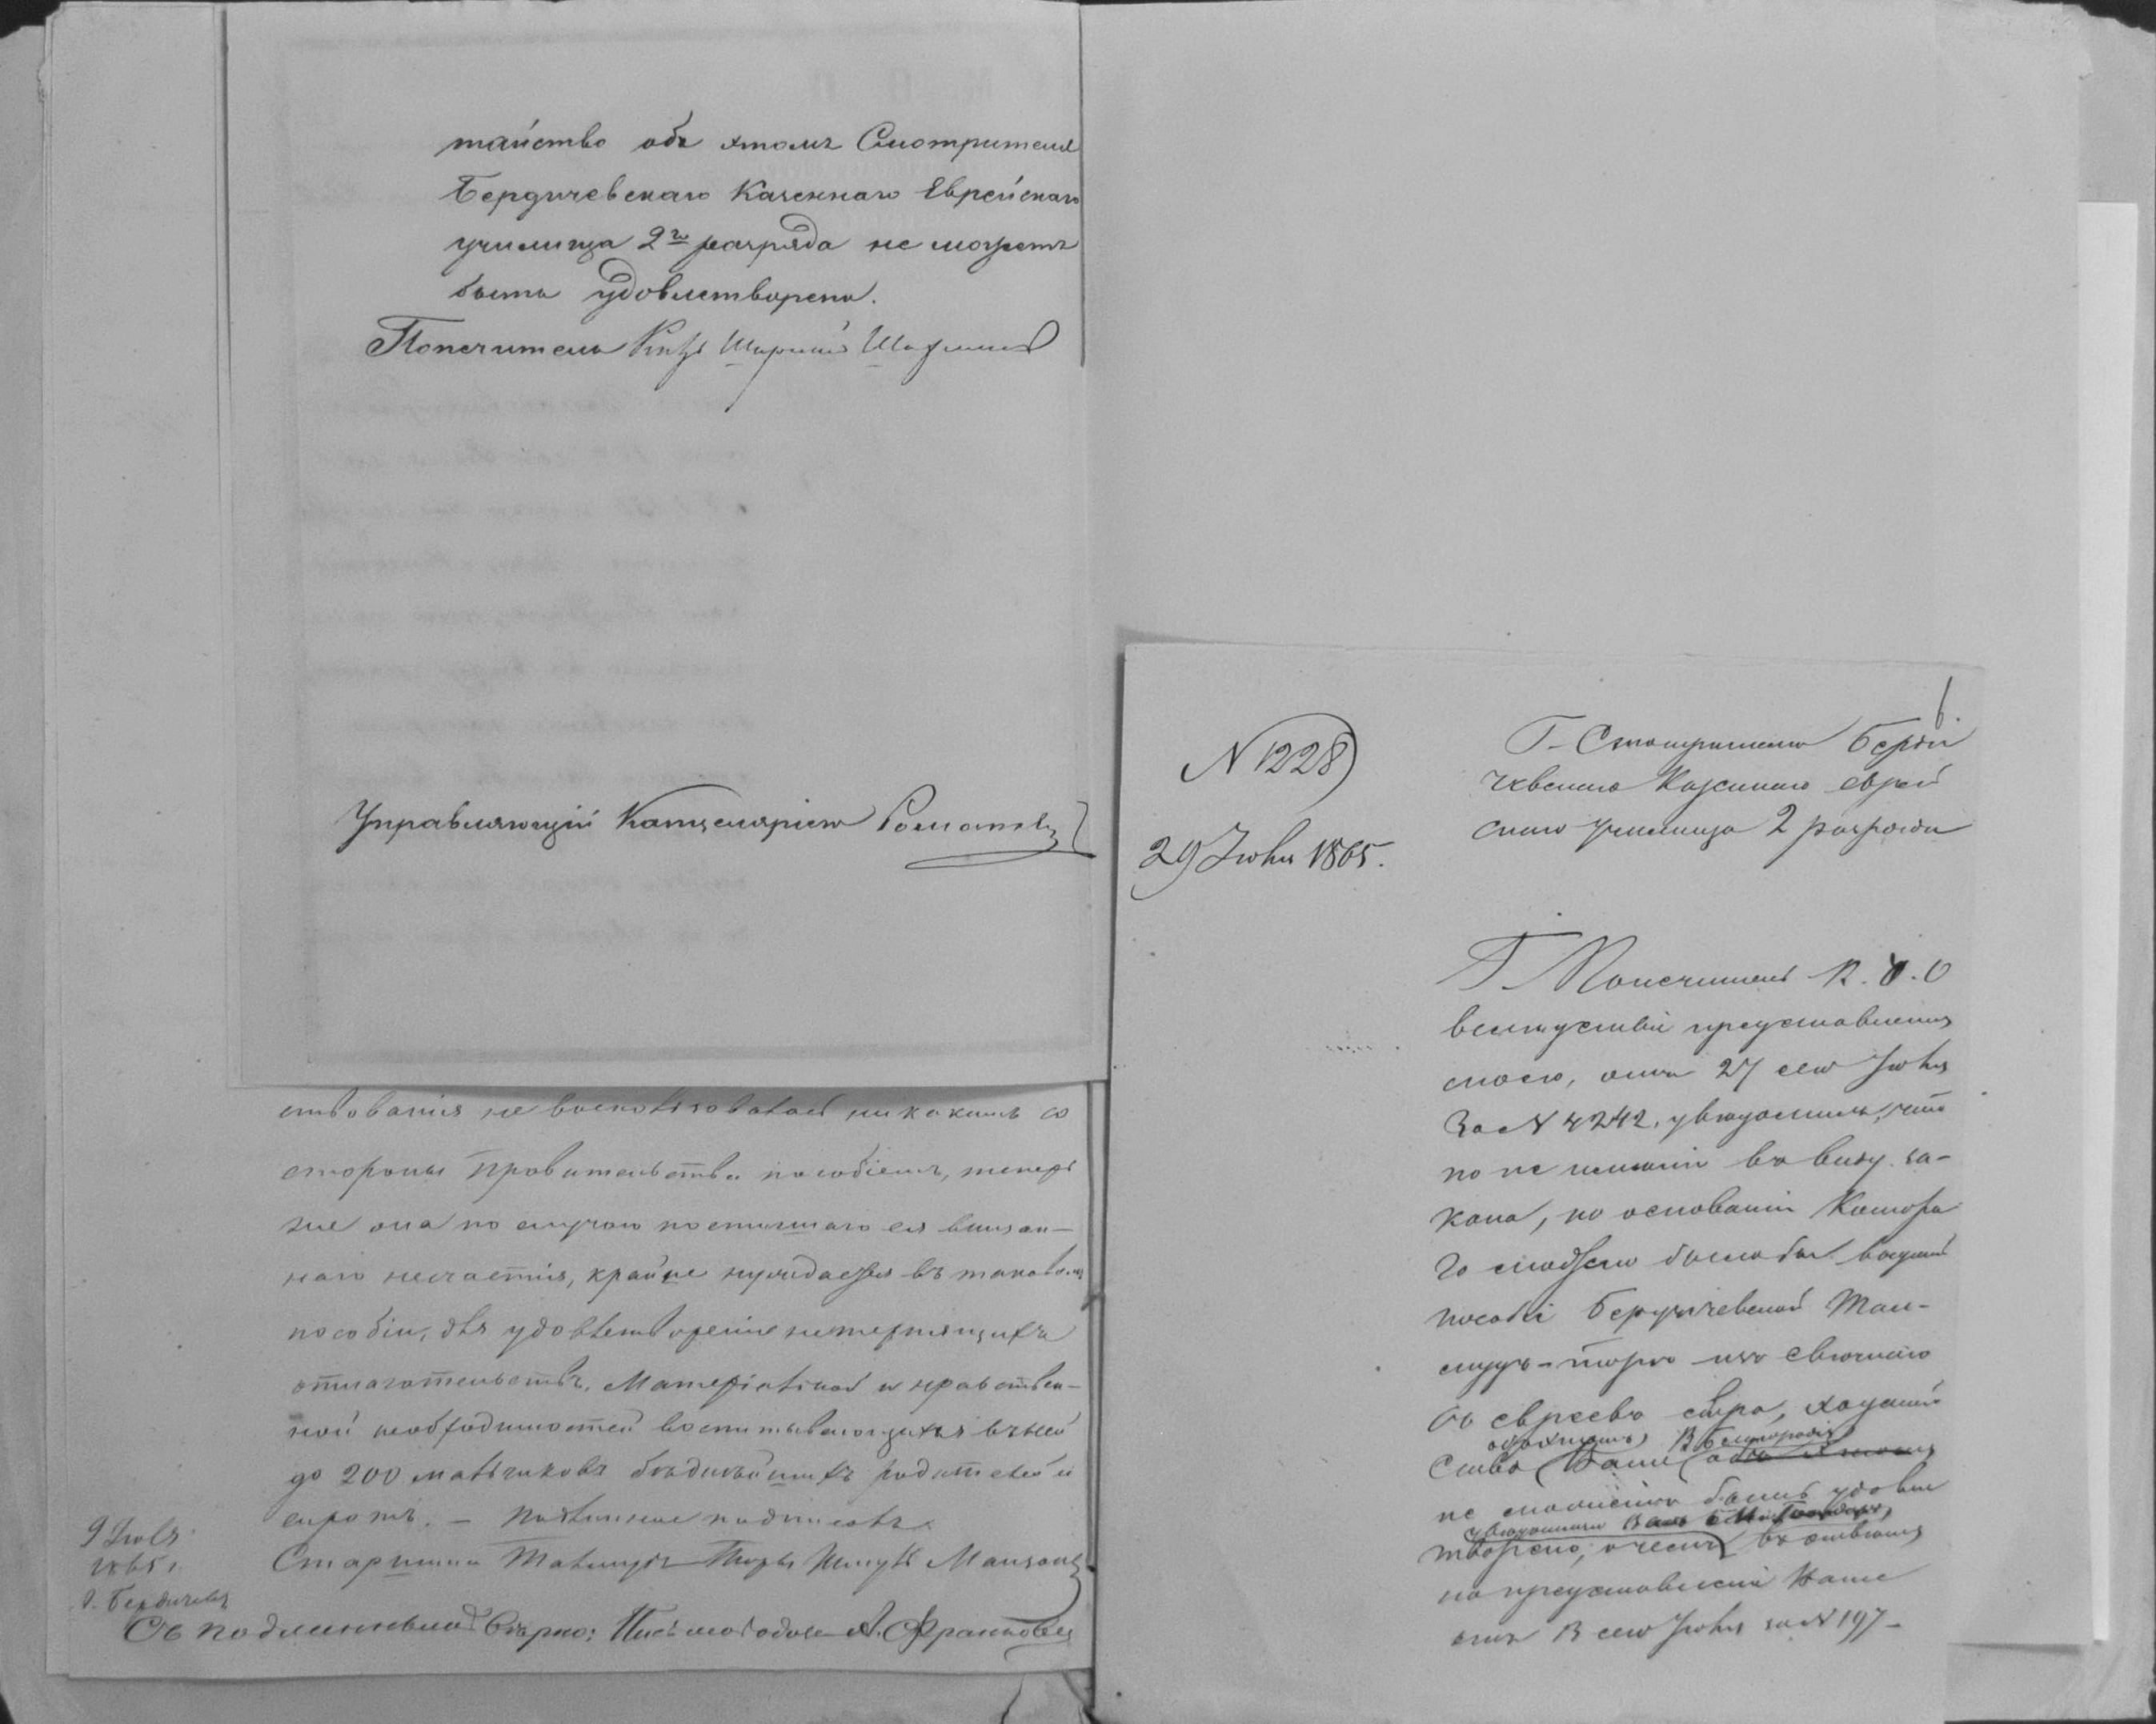 тайство объ этомъ Смотрителя
Бердичевскаго Казеннаго Еврейскаго
училища 2го разряда не можетъ
быть удовлетворено.
Попечитель Князь Ширинскій Шихматовъ
Управляющій Канцеляріею Романовъ
ствованія не воспользовалась никакимъ со
стороны Правительства пособіемъ, теперь
же она по случаю постигшаго ея внезап-
наго несчастія, крайне нуждается въ таковомъ
пособіи, для удовлетвореніе нетерпящихъ
отлагательствъ, Матеріальной и нравствен-
ной необходимостей воспитывающихся въ ней
до 200 мальчиковъ бѣднѣйшихъ родителей и
сиротъ. — Подлинное подписалъ
Старшина Талмудъ Торы Шмуль Манзонъ
9 Іюля
1865 г.
г. Бердичевъ
Съ подлиннымъ вѣрно: Письмоводитель А.
6.
N 1228
29 Іюля 1865.
Г. Смотрителю Берди
чевскаго Казеннаго еврей
скаго училища 2 разряда
Г. Попечитель К. У. О
вслѣдствіе представленія
моего, отъ 27 сего Іюля
за N 4242, увѣдомилъ, что
по не имѣнію въ виду за-
кона, на основаніи котора
го можно было бы выдать
пособіе Бердичевской Тал-
мудъ-торѣ изъ свѣчнаго
съ евреевъ сбора, ходатай
ство Ваше объ этомъ
не можетъ быть удовле
творено, о чемъ въ отвѣтъ
на представленіе Ваше
отъ 13 сего Іюля за N 197 —